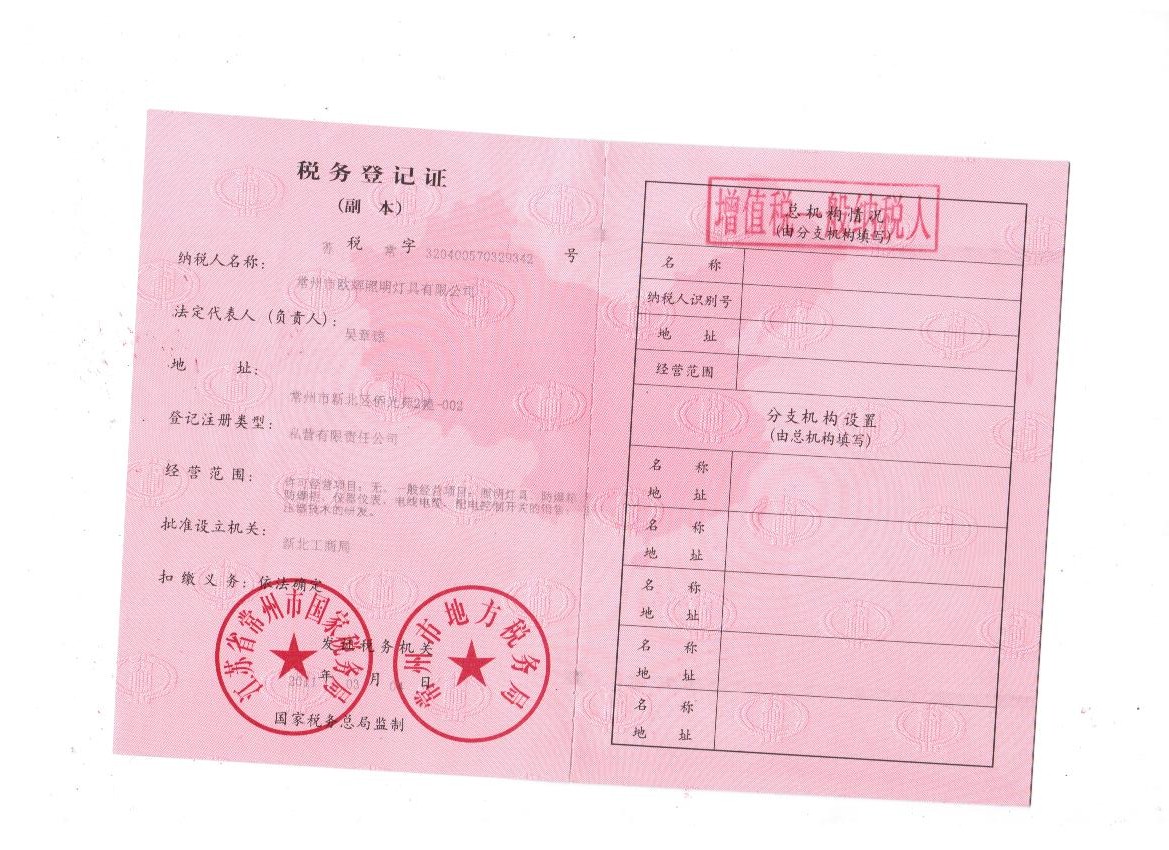 税务登记证
(副 本)
苏 税 常 字 320400570329342 号
纳税人名称:
常州市欧辉照明灯具有限公司
法定代表人(负责人):
吴章琼
地 址:
常州市新北区侨光苑2幢-002
登记注册类型:
私营有限责任公司
经 营 范 围:
许可经营项目:无。一般经营项目:照明灯具、防爆
防爆柜、仪器仪表、电线电缆、配电控制开关的销售,
压器技术的研发。
批准设立机关:
新北工商局
扣 缴 义 务:依法确定
江苏省常州市国家税务局
常州市地方税务局
发证税务机关
2011年 03 月 日
国家税务总局监制
增值税一般纳税人
总机构情况
(由分支机构填写)
名 称
纳税人识别号
地 址
经营范围
分支机构设置
(由总机构填写)
名 称
地 址
名 称
地 址
名 称
地 址
名 称
地 址
名 称
地 址